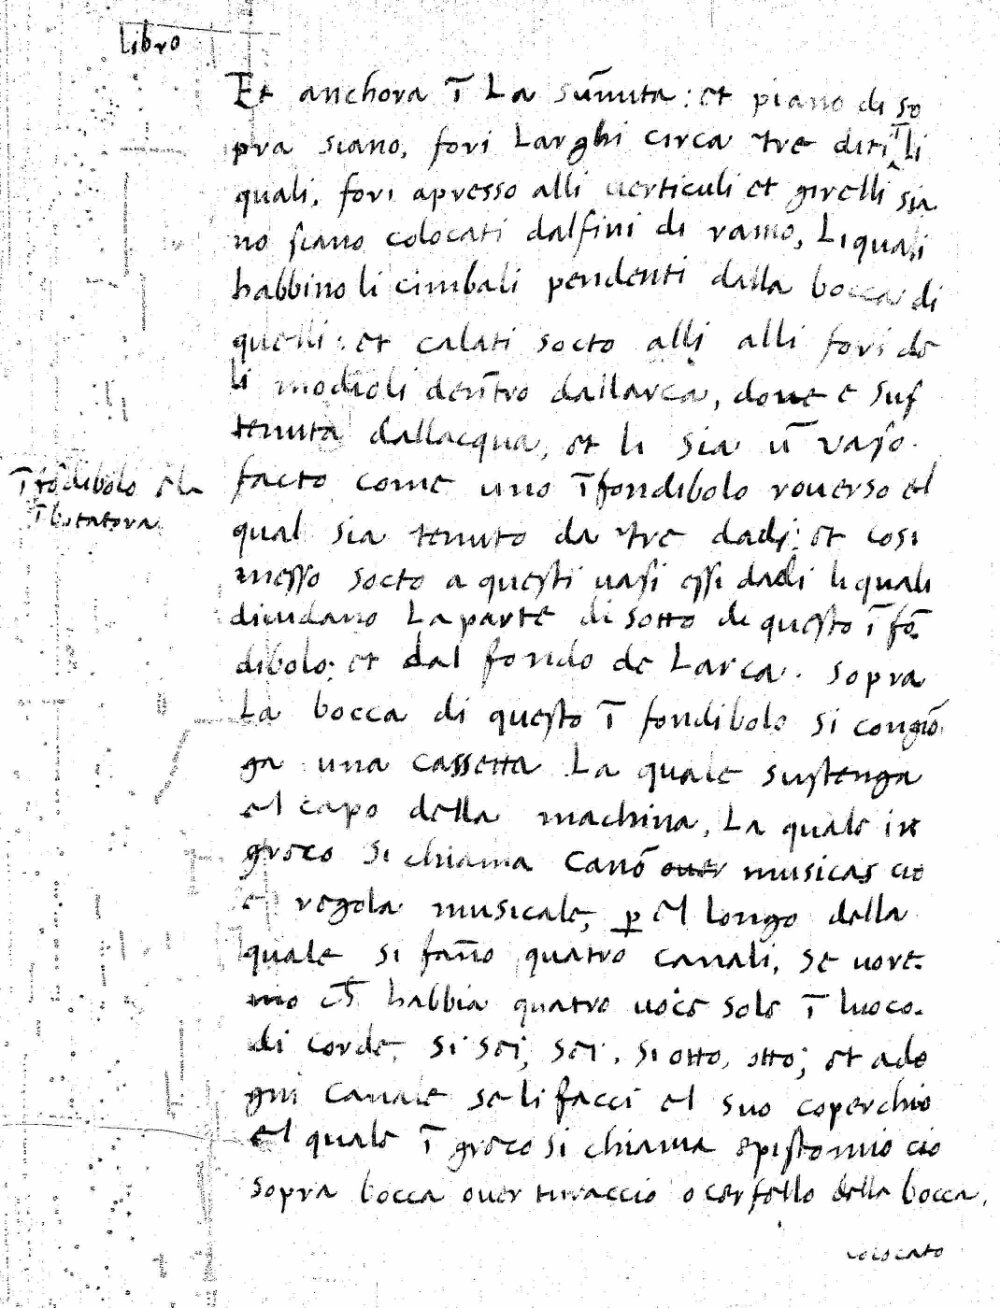 Libro
Et anchora ī La sum̄ita: et piano di so
pra siano, fori Larghi circa tre diti ī li
quali, fori apresso alli uerticuli et girelli sia
no siano colocati dalfini di ramo, Li quali
habbino li cimbali pendenti dalla bocca di
quelli: et calati socto alli alli fori de
li modioli den̄tro dallarca, doue e suf
tenuta dallacqua, et li sia ū vaso.
facto come uno īfondibolo rouerso el
īfōdibolo e la
ībotatora
qual sia tenuto da tre dadi: et cosi
messo socto a questi uasi essi dadi li quali
diuidano La parte di sotto di questo ī fō
dibolo: et dal fondo de Larca. sopra
La bocca di questo ī fondibolo si congiō
ga una cassetta La quale sustenga
el capo della machina, La quale in
greco si chiama canō ouer musicas cio
e regola musicale, p̱ el longo della
quale si fan̄o quatro canali, se uore
mo ch̄ habbia quatro uoce sole ī luoco.
di corde, si sei, sei, si otto, otto; et ado
gni canale se li facci el suo coperchio
el quale ī greco si chiama epistomio cio
sopra bocca ouer turaccio o della bocca,